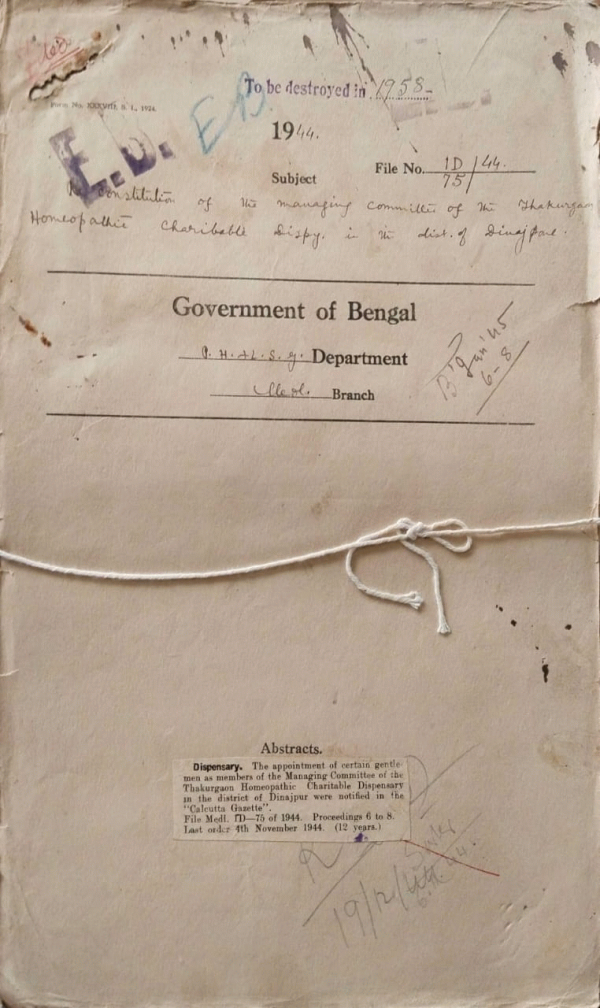 Filed
To be destroyed in 1958-
Form No. XXXVIII, R. I., 1924.
E.D. EB
1944.
File No. 1D/75 /44.
Subject
Re constitution of the managing committee of the Thakurgaon
Homeopathic Charibable Dispy. in the dist. of Dinajpore.
Government of Bengal
P. H. & L. S. G. Department
Medl. Branch
B' Jan '45
6-8
Abstracts.
Dispensary. The appointment of certain gentle-
men as members of the Managing Committee of the
Thakurgaon Homeopathic Charitable Dispensary
in the district of Dinajpur were notified in the
"Calcutta Gazette".
File Medl. 1D—75 of 1944. Proceedings 6 to 8.
Last order 4th November 1944. (12 years.)
R
19/12/44